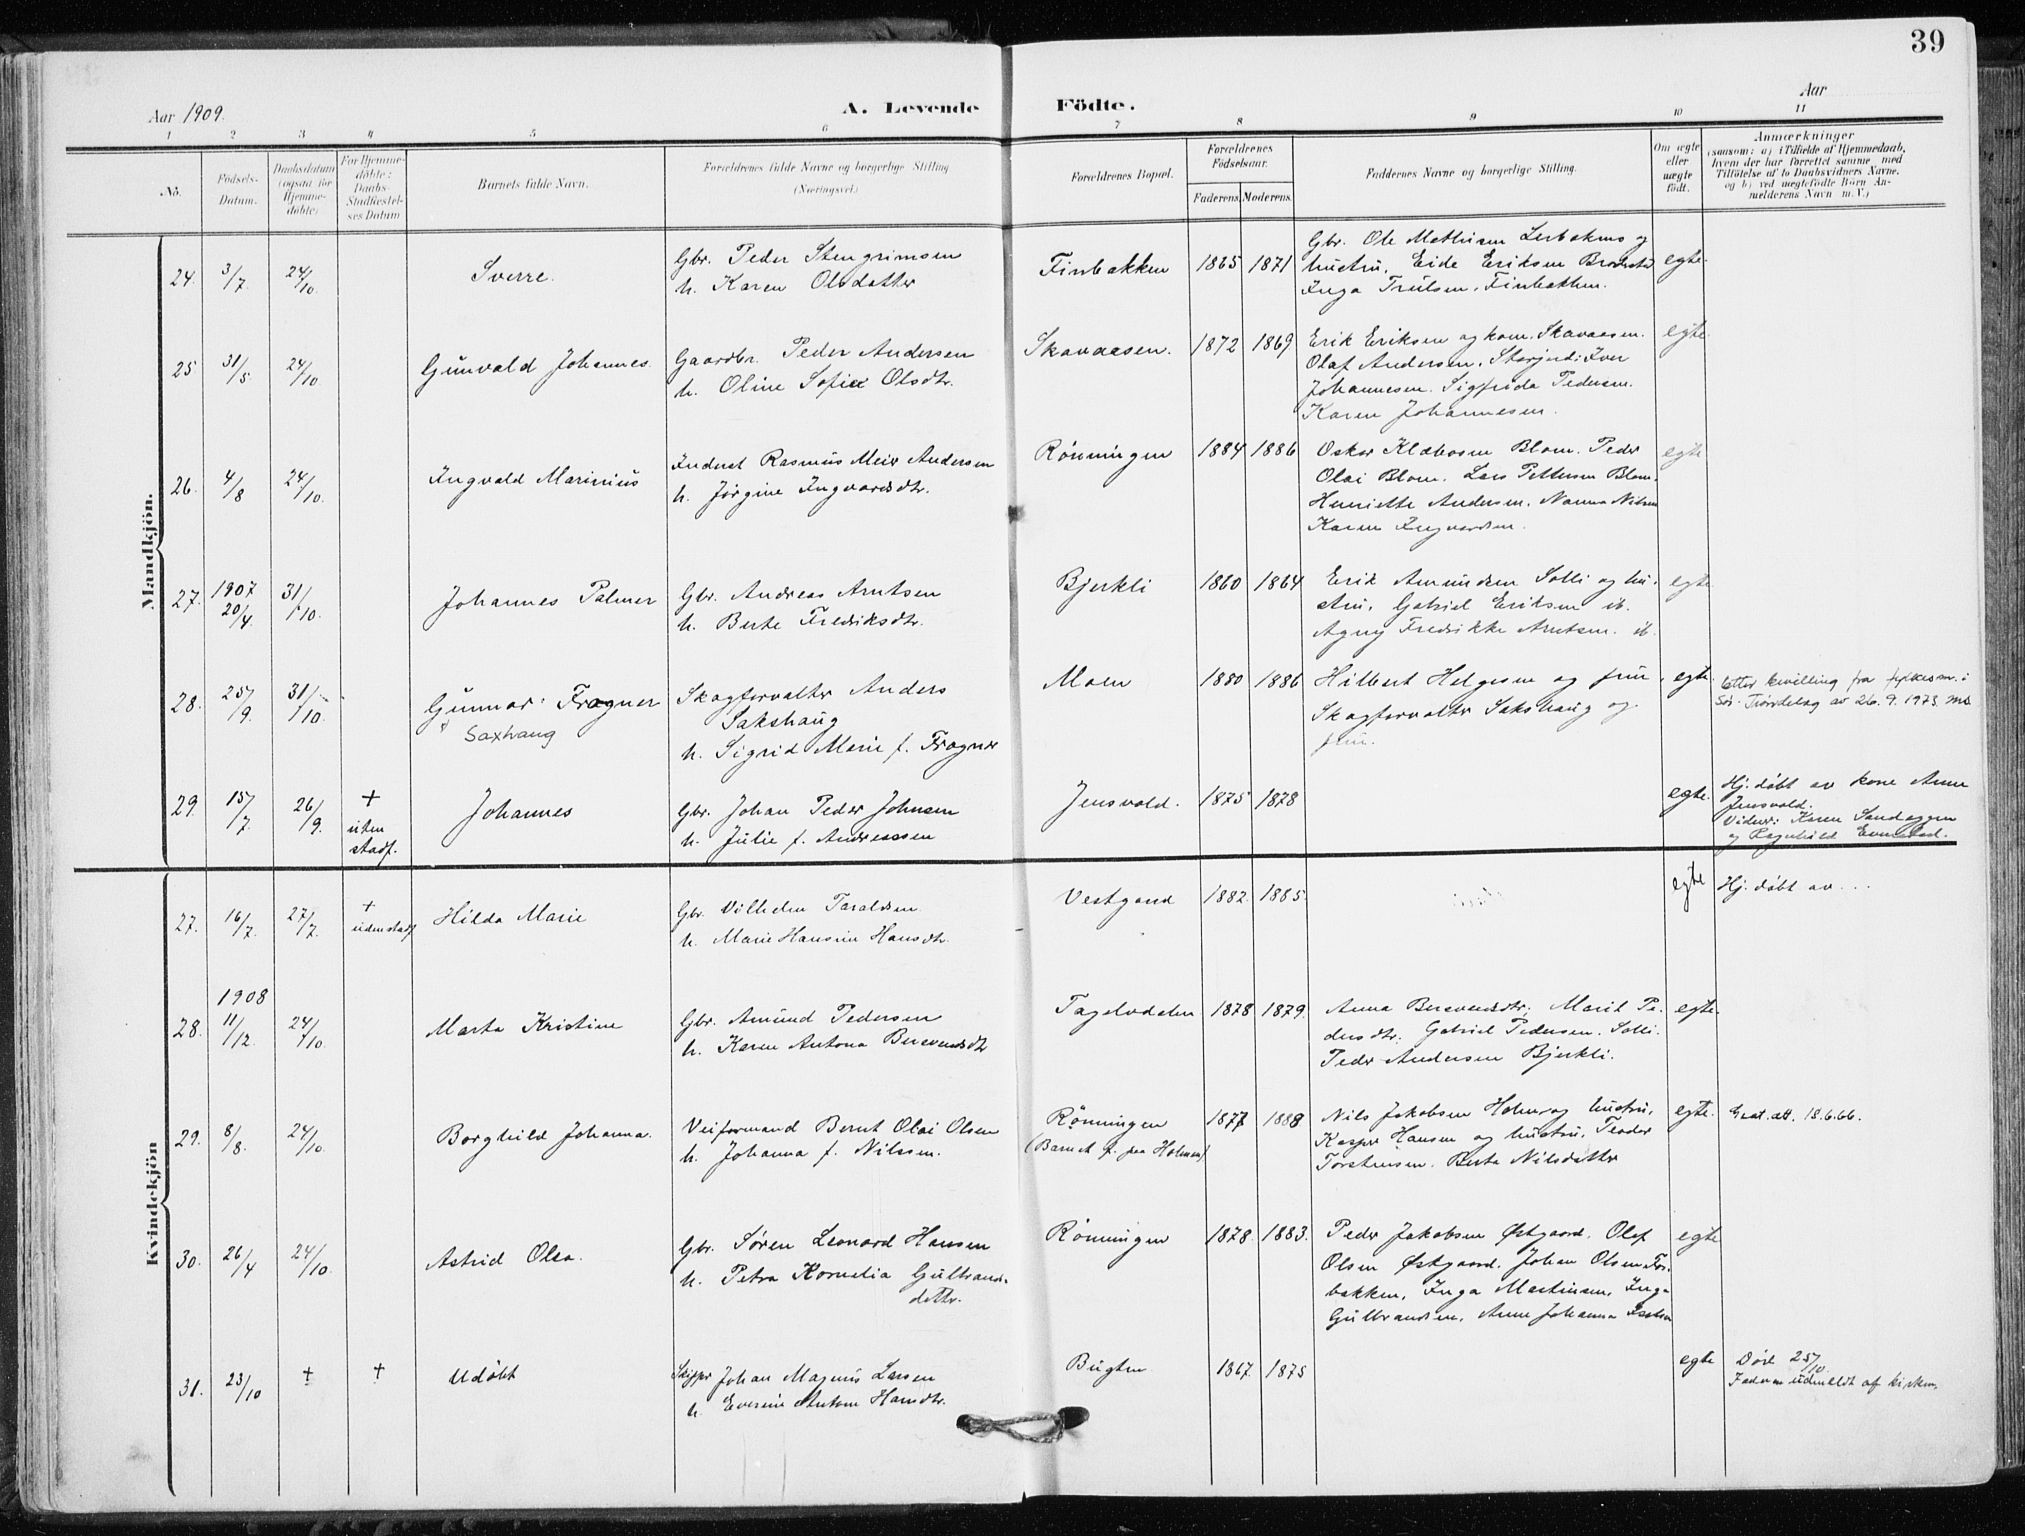 39
Aar 1909.
A. Levende Födte.
Aar
1 2 3 4 5 6 7 8 9 10 11
No.
Födsels-Datum.
Daabsdatum (ogsaa for Hjemme-döbte)
For Hjemme-döbte: Daabs-Stadfæstel-ses Datum
Barnets fulde Navn.
Forældrenes fulde Navne og borgerlige Stilling (Næringsvei.)
Forældrenes Bopæl.
Forældrenes Födselsaar.
Faderens Moderens.
Faddernes Navne og borgerlige Stilling.
Om ægte eller uægte födt.
Anmærkninger
(saasom: a) i Tilfælde af Hjemmedaab,
hvem der har forrettet samme, med
Tilföielse af to Daabsvidners Navne,
og b) ved uægtefödte Börn An-
melderens Navn m. V.)
Mandkjön.
24. 3/7. 24/10. Sverre. Gbr. Peder Stengrimsen
h. Karen Olsdatter
Finbakken 1865 1871 Gbr. Ole Mathisen Lerbakmo og
hustru, Eide Eriksen
Inga Trulsen, Finbakken.
egte.
25 31/5. 24/10. Gunvald Johannes. Gaardbr. Peder Andersen
h. Oline Sofie Olsdtr.
Skavaasen. 1872 1869 Erik Eriksen og kone, Skavaasen.
Olaf Andersen, Iver
Johannesen. Sigfrida Pedersen.
Karen Johannesen.
egte.
26. 4/8 24/10. Ingvald Marinius Inderst Rasmus Meier Andersen
h. Jørgine Ingvardsdtr.
Rönningen 1884 1886 Oskar Klæbosen Blom. Peder
Olai Blom. Lars Pettersen Blom.
Henriette Andersen. Nanna Nilsen
Karen Ingvardsen.
egte
27. 1907 20/4. 31/10. Johannes Palmer Gbr. Andreas Arntsen
h. Berte Fredriksdtr.
Bjerkli 1860 1864 Erik Amundsen Solli og hu-
stru, Gabriel Eriksen ib.
Agny Fredrikke Arntsen. ib.
egte.
28. 25/9. 31/10. Gunnar Fragner
Saxhaug
Skogforvalter Anders
Sakshaug
h. Sigrid Marie f. Fragner
Moen 1880 1886 Hilbert Helgesen og frue,
Skogforvalter Sakshaug og
frue.
egte. Etter bevilling fra fylkesm. i
Sør-Trøndelag av 26.9.1973.
29. 15/7. 26/9. +
uten
stadf.
Johannes Gbr. Johan Peder Johnsen
h. Julie f. Andreassen
Jensvold. 1875 1878 egte. Hj. døbt av kone Anne
Jensvold.
Vidner: Karen Sandaggen
og Ragnhild Evenstad.
Kvindekjön
27. 16/7. 27/7. +
uden stadf
Hilda Marie Gbr. Vilhelm Taraldsen
h. Marie Hansine Hansdtr.
Vestgaard 1882. 1885. egte Hj. døbt av ...
28. 1908 11/12. 24/10. Marta Kristine Gbr. Amund Pedersen
h. Karen Antona Bersvendsdtr
Fagelvdalen 1878 1879. Anna Bersvendsdtr. Marit Pe-
dersdtr. Gabriel Pedersen. Solli.
Peder Andersen Bjerkli.
egte.
29. 8/8. 24/10. Borghild Johanna. Veiformand Bernt Olai Olsen
h. Johanna f. Nilssen.
Rönningen
(Barnet f. paa Holmen)
1877 1888 Nils Jakobsen Holmen og hustru,
Kasper Hansen og hustru, Teodor
Torstensen. Berta Nilsdatter
egte. att. 18.6.66.
30. 26/4 24/10. Astrid Olea. Gbr. Søren Leonard Hansen
h. Petra Kornelia Gulbrands-
datter.
Rönningen 1878. 1883. Peder Jakobsen Østgaard. Olaf
Olsen Østgaard. Johan Olsen Fin-
bakken, Inga Martinsen, Inga
Gulbrandsen, Anne Johanna
egte
31. 23/10 + + Udöbt Skipper Johan Magnus Larsen
h. Everine Antone Hansdtr.
Bugten 1867. 1875 egte Død 25/10.
Faderen udmeldt af kirken.